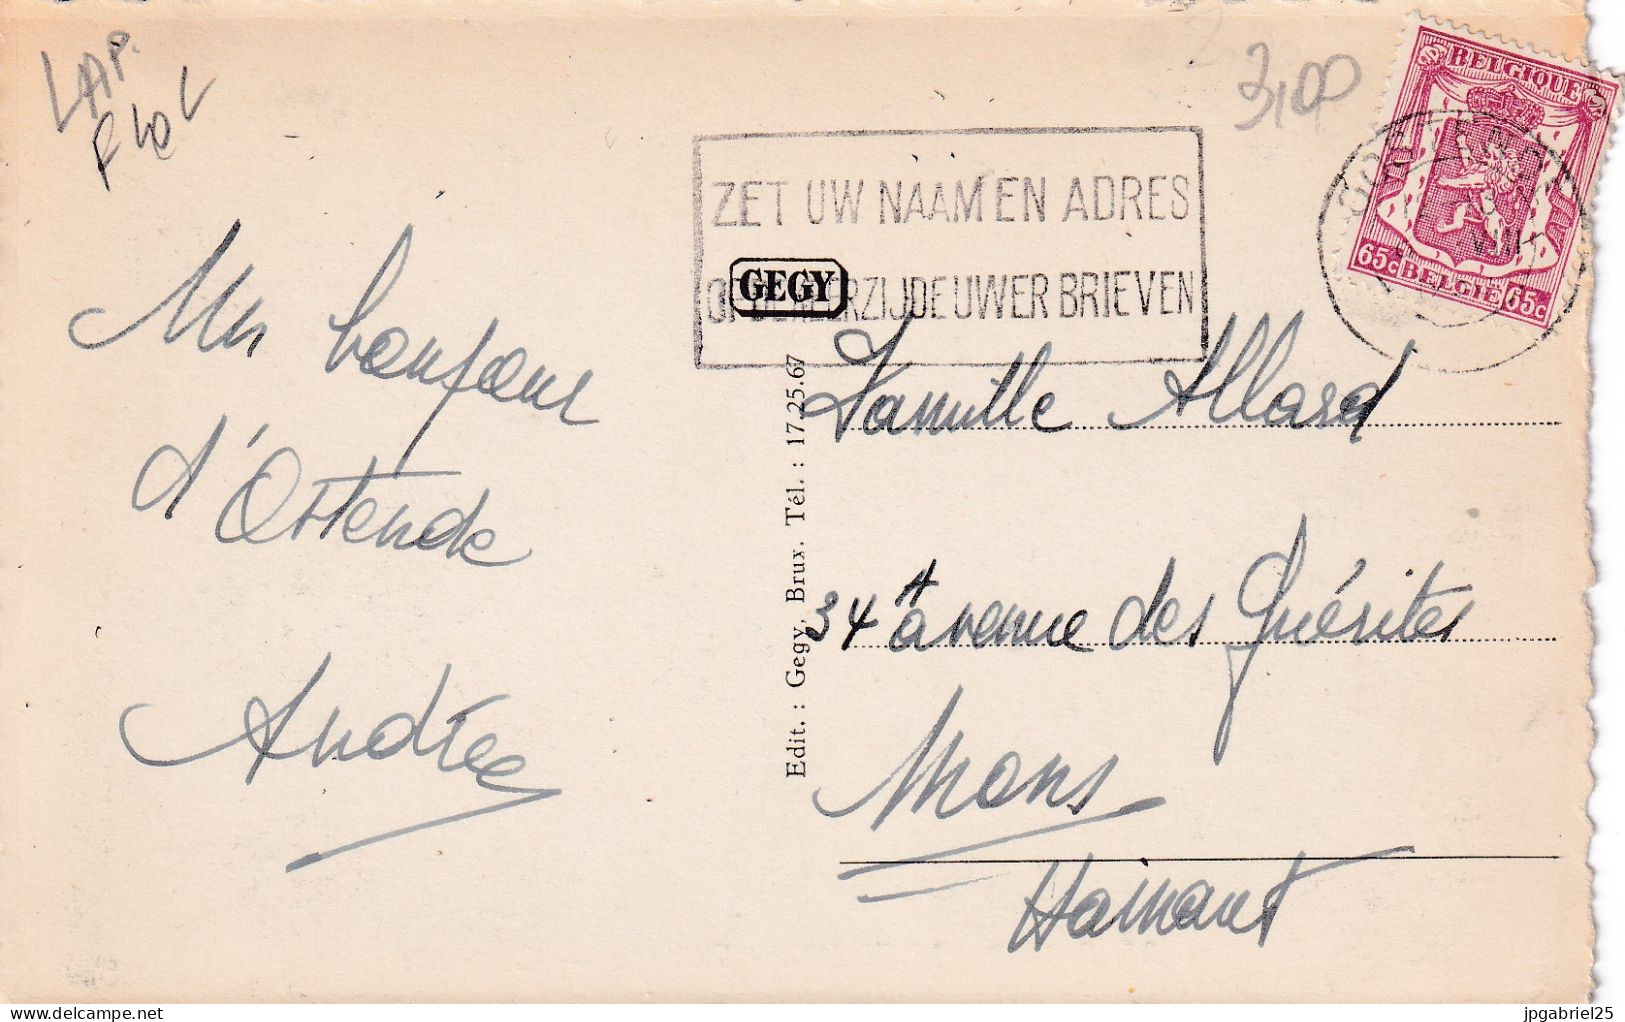 LAP.
3,00
BELGIQUE
65c BELGIE 65c
ZET UW NAAM EN ADRES
OP DE KEERZIJDE UWER BRIEVEN
GEGY
Un bonjour
d'Ostende
Andrée
Edit.: Gegy, Brux. Tél.: 17.25.67
Famille Allard
34A avenue des Guérites
Mons
Hainaut
jpgabriel25